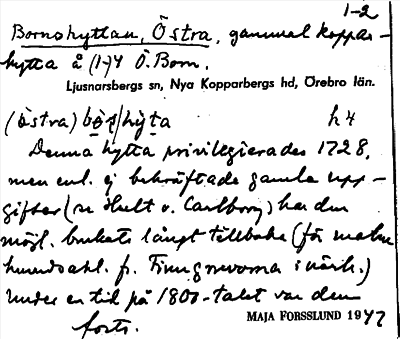 1-2
Bornshyttan, Östra, gammal koppar-
hytta å (1-)4 Ö. Born.
Ljusnarsbergs sn, Nya Kopparbergs hd, Örebro län.
(östra) hyta h4
Denna hytta privilegierades 1728,
men enl. ej bekräftade gamla upp-
gifter (se Hult o. Carlborg) har den
möjl. brukats långt tillbaka (för
hundratal. fr. Finngruvorna i närh.)
Under en tid på 1800-talet var den
forts.
MAJA FORSSLUND 1947